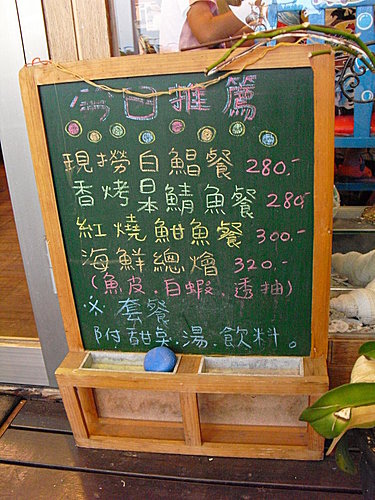 今日推薦
現撈白鯧餐 280.-
香烤日本鯖魚餐 280.-
紅燒魽魚餐 300.-
海鮮總燴 320.-
(魚皮.白蝦.透抽)
※套餐
附甜点.湯.飲料。